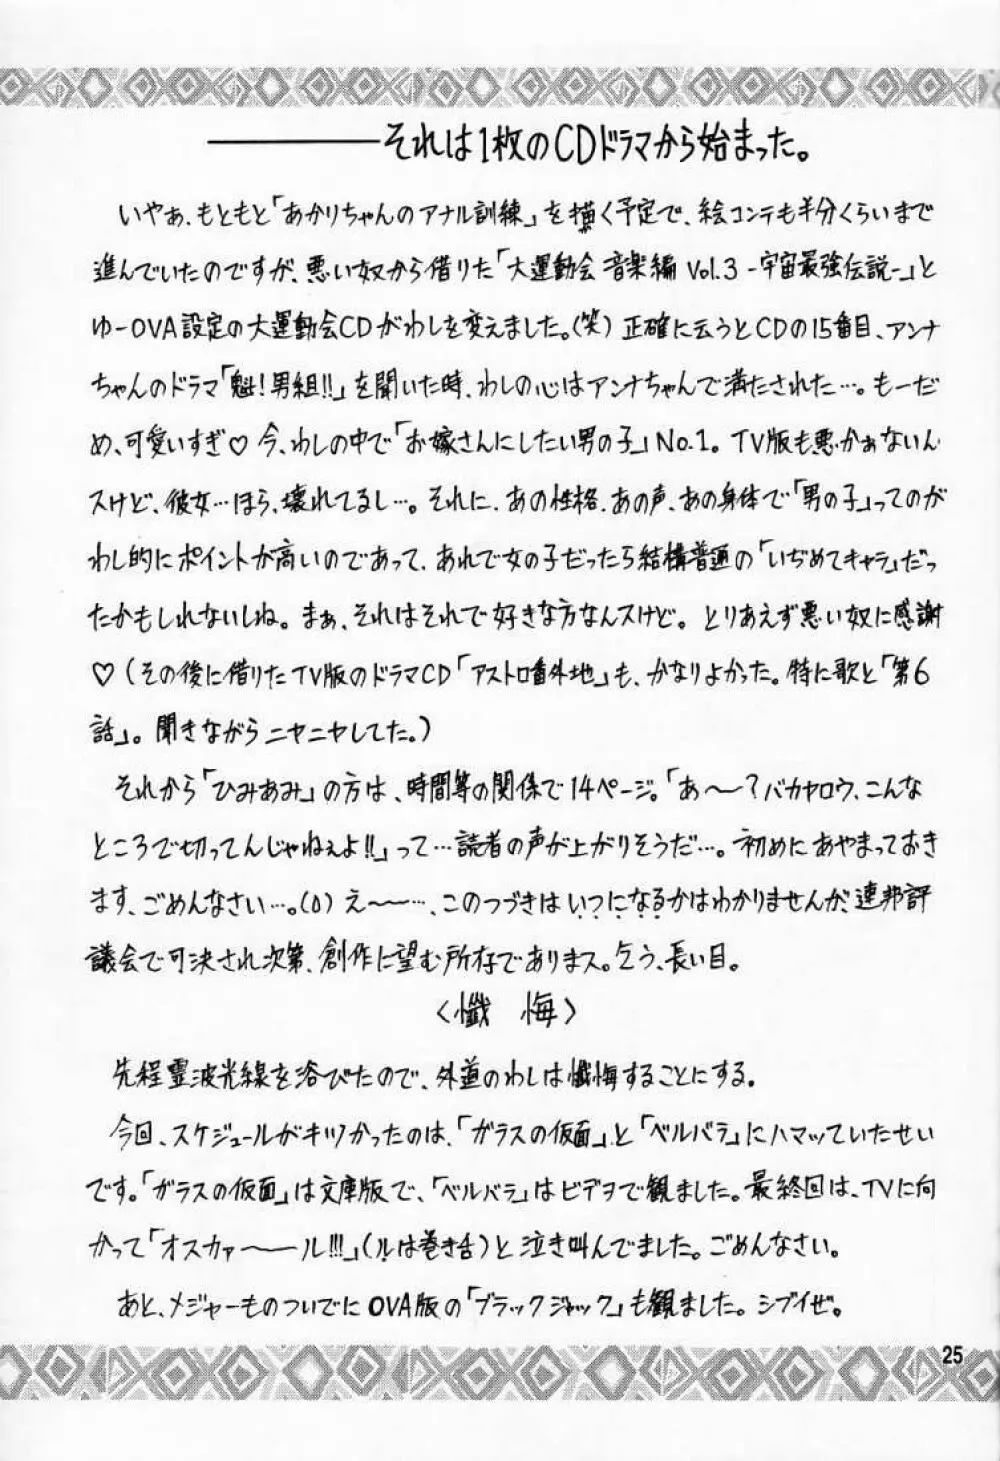 それは1枚のCDドラマから始まった。
いやぁ、もともと「あかりちゃんのアナル訓練」を描く予定で、絵コンテも半分くらいまで
進んでいたのですが、悪い奴から借りた「大運動会 音楽編 Vol.3 -宇宙最強伝説-」と
ゆーOVA設定の大運動会CDがわしを変えました。(笑) 正確に云うとCDの15番目、アンナ
ちゃんのドラマ「魁!男組!!」を聞いた時、わしの心はアンナちゃんで満たされた…。もーだ
め、可愛いすぎ♡ 今、わしの中で「お嫁さんにしたい男の子」No.1。TV版も悪かぁないん
スけど、彼女…ほら、壊れてるし…。それに、あの性格、あの声、あの身体で「男の子」ってのが
わし的にポイントが高いのであって、あれで女の子だったら結構普通の「いぢめてキャラ」だっ
たかもしれないしね。まぁ、それはそれで好きな方なんスけど。とりあえず悪い奴に感謝
♡(その後に借りたTV版のドラマCD「アストロ番外地」も、かなりよかった。特に歌と「第6
話」。聞きながらニヤニヤしてた。)
それから「ひみあみ」の方は、時間等の関係で14ページ。「あ〜〜?バカヤロウ、こんな
ところで切ってんじゃねぇよ!!」って…読者の声が上がりそうだ…。初めにあやまっておき
ます、ごめんなさい…。(0) え〜〜…、このつづきはいつになるかはわかりませんが、連邦評
議会で可決され次第、創作に望む所存でありまス。乞う、長い目。
〈懺 悔〉
先程霊波光線を浴びたので、外道のわしは懺悔することにする。
今回、スケジュールがキツかったのは、「ガラスの仮面」と「ベルバラ」にハマッていたせい
です。「ガラスの仮面」は文庫版で、「ベルバラ」はビデヲで観ました。最終回は、TVに向
かって「オスカァ〜〜ル!!!」(ルは巻き舌)と泣き叫んでました。ごめんなさい。
あと、メジャーものついでにOVA版の「ブラックジャック」も観ました。シブイぜ。
25